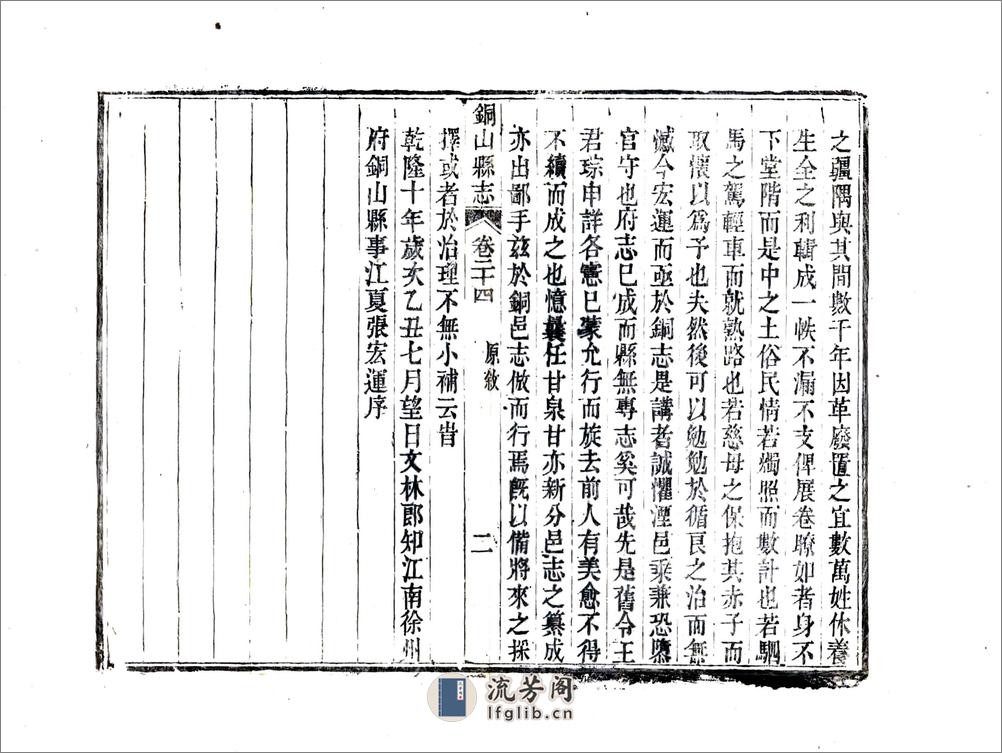 之疆隅與其間數千年因革廢置之宜數萬姓休養
生全之利輯成一帙不漏不支俾展卷瞭如者身不
下堂階而是中之土俗民情若燭照而數計也若駟
馬之駕輕車而就熟路也若慈母之保抱其赤子而
取懷以爲予也夫然後可以勉勉於循良之治而無
憾今宏運而亟於銅志是講者誠懼湮邑乘兼恐隳
官守也府志已成而縣無專志奚可哉先是舊令王
君琮申詳各憲已蒙允行而旋去前人有美愈不得
不續而成之也憶曩任甘泉甘亦新分邑志之纂成
亦出鄙手兹於銅邑志倣而行焉旣以備將來之採
銅山縣志 卷二十四 原敘 二
擇或者於治理不無小補云旹
乾隆十年歲次乙丑七月望日文林郎知江南徐州
府銅山縣事江夏張宏運序
流芳阁
lfglib.cn